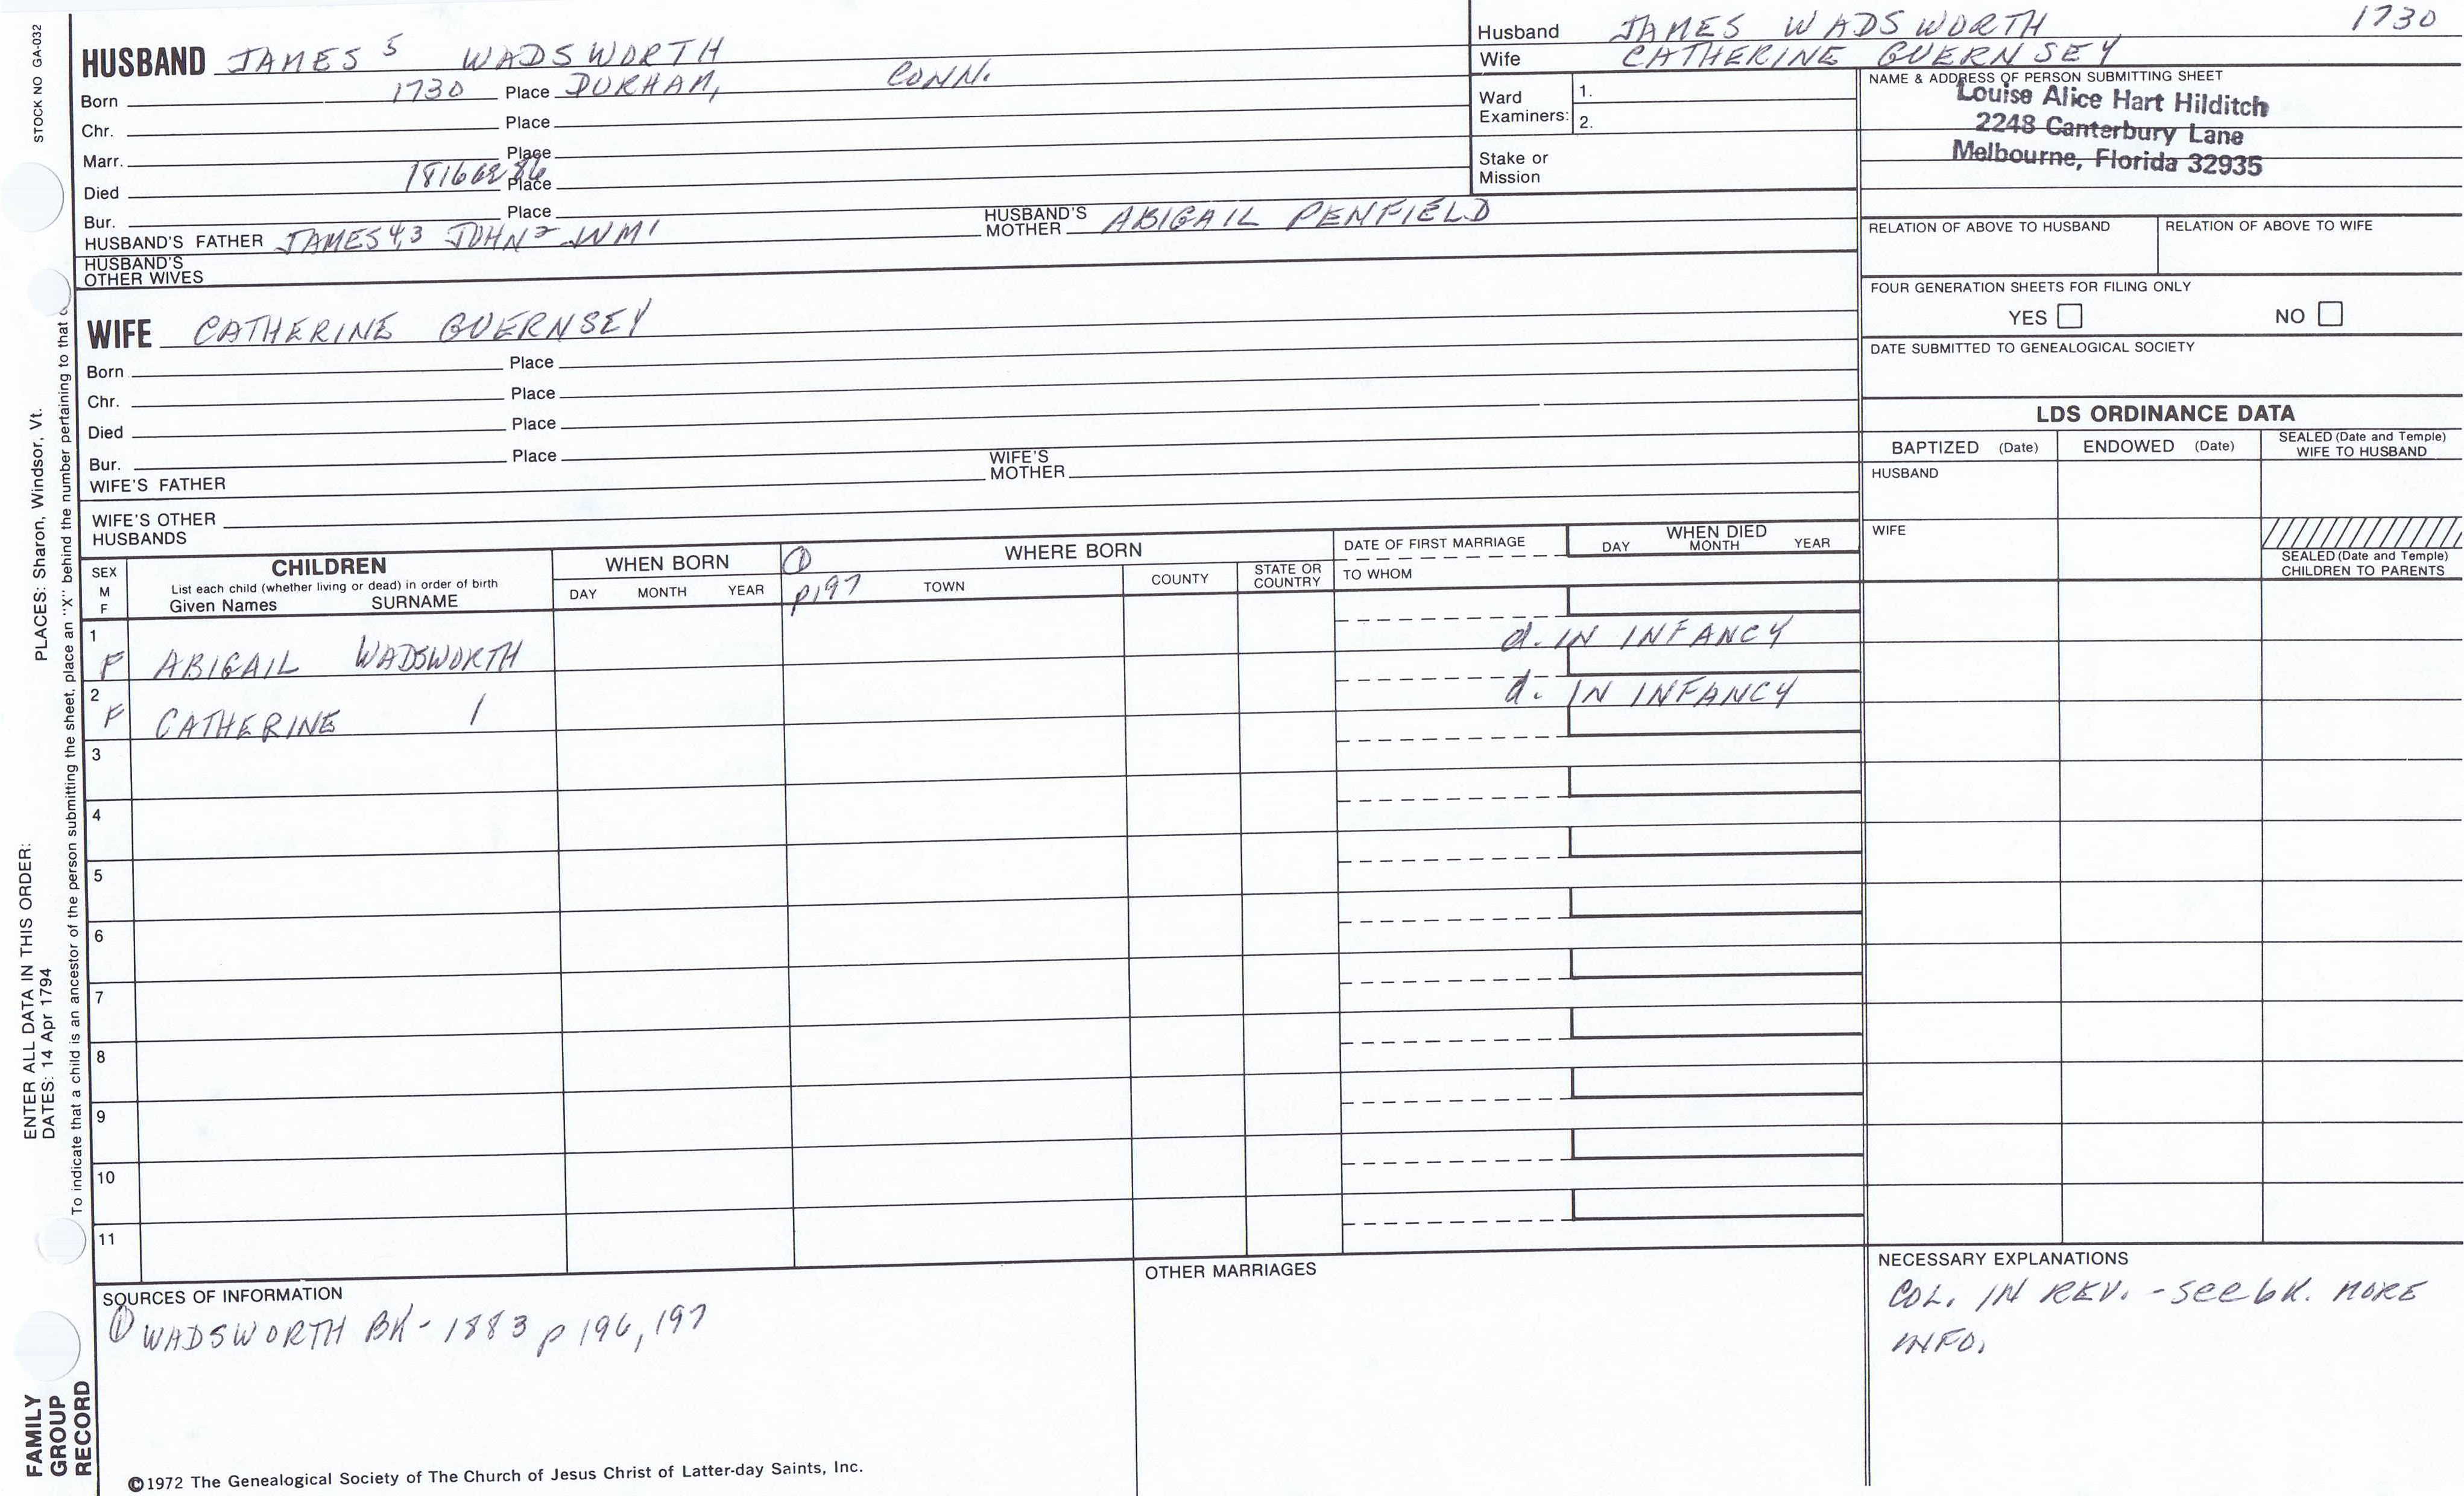 STOCK NO GA-032
HUSBAND JAMES 5 WADSWORTH
Born 1730 Place DURHAM, CONN.
Chr. Place
Marr. Place
Died 1816 Place
Bur. Place
HUSBAND'S FATHER JAMES 4,3 JOHN 2 WM 1 HUSBAND'S MOTHER ABIGAIL PENFIELD
HUSBAND'S OTHER WIVES
Husband JAMES WADSWORTH 1730
Wife CATHERINE GUERNSEY
Ward Examiners: 1.
2.
Stake or Mission
NAME & ADDRESS OF PERSON SUBMITTING SHEET
Louise Alice Hart Hilditch
2248 Canterbury Lane
Melbourne, Florida 32935
RELATION OF ABOVE TO HUSBAND RELATION OF ABOVE TO WIFE
FOUR GENERATION SHEETS FOR FILING ONLY
YES NO
DATE SUBMITTED TO GENEALOGICAL SOCIETY
WIFE CATHERINE GUERNSEY
Born Place
Chr. Place
Died Place
Bur. Place
WIFE'S FATHER WIFE'S MOTHER
WIFE'S OTHER HUSBANDS
LDS ORDINANCE DATA
BAPTIZED (Date) ENDOWED (Date) SEALED (Date and Temple) WIFE TO HUSBAND
HUSBAND
WIFE
SEALED (Date and Temple) CHILDREN TO PARENTS
SEX M F CHILDREN
List each child (whether living or dead) in order of birth
Given Names SURNAME
WHEN BORN
DAY MONTH YEAR
① p197 WHERE BORN
TOWN COUNTY STATE OR COUNTRY
DATE OF FIRST MARRIAGE
TO WHOM
WHEN DIED
DAY MONTH YEAR
1 F ABIGAIL WADSWORTH d. IN INFANCY
2 F CATHERINE / d. IN INFANCY
3
4
5
6
7
8
9
10
11
SOURCES OF INFORMATION
① WADSWORTH BK - 1883 p 196, 197
OTHER MARRIAGES
NECESSARY EXPLANATIONS
COL. IN REV. - see bk. MORE
INFO.
©1972 The Genealogical Society of The Church of Jesus Christ of Latter-day Saints, Inc.
FAMILY
GROUP
RECORD
ENTER ALL DATA IN THIS ORDER:
DATES: 14 Apr 1794
PLACES: Sharon, Windsor, Vt.
To indicate that a child is an ancestor of the person submitting the sheet, place an "X" behind the number pertaining to that